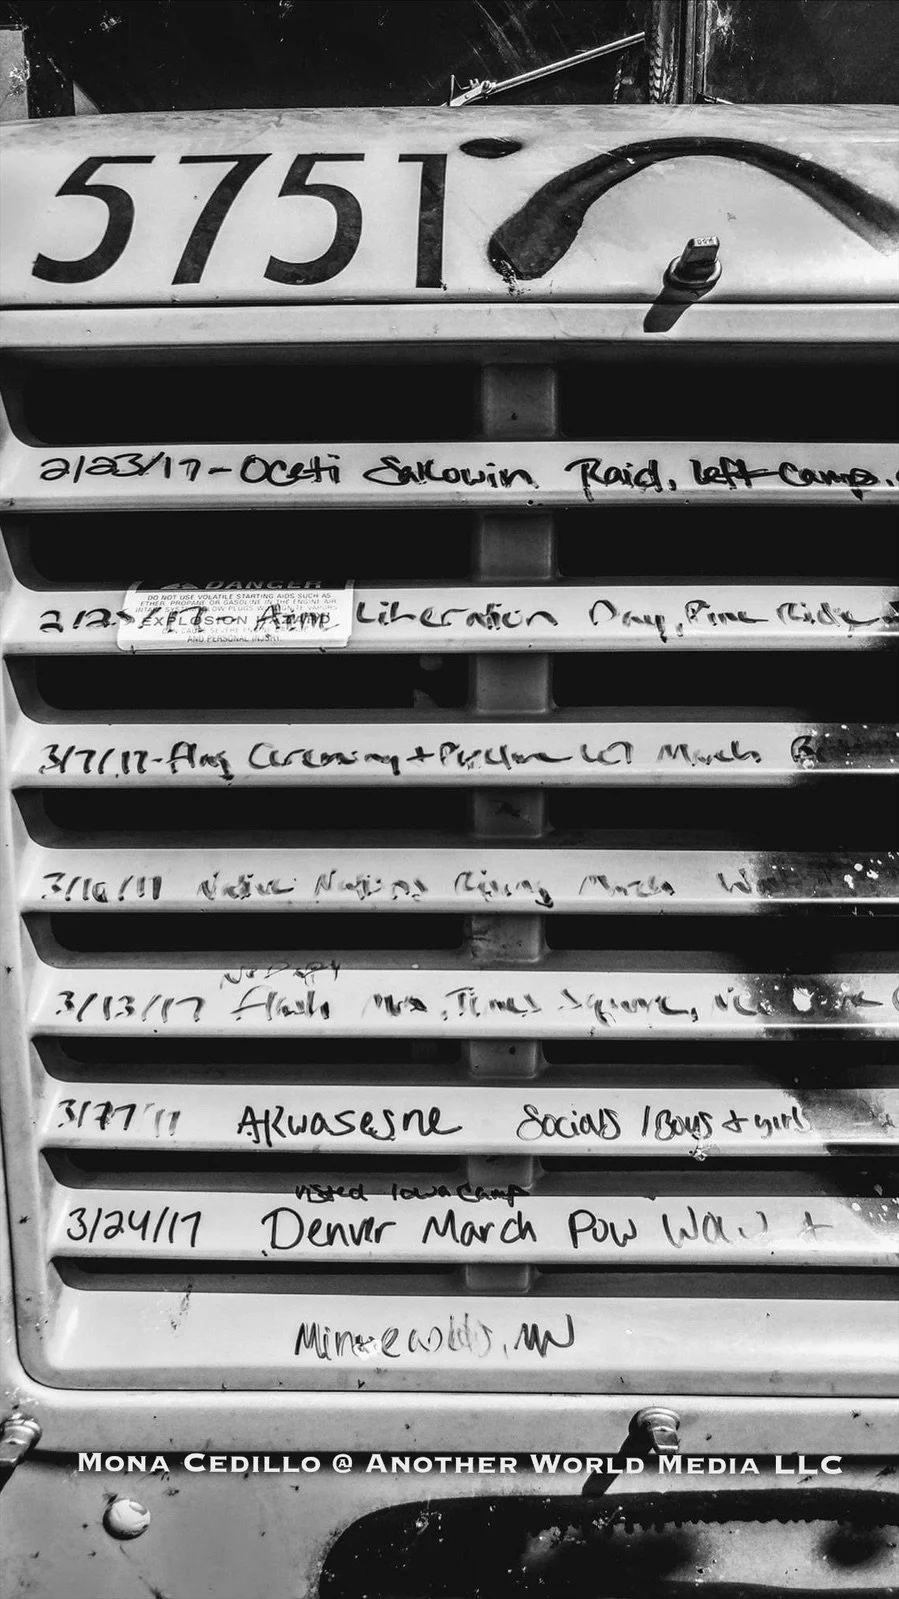 5751
2/23/17 - Oceti Sakowin Raid, left camp.
DANGER
DO NOT USE VOLATILE STARTING AIDS SUCH AS
ETHER, PROPANE OR GASOLINE IN THE ENGINE AIR
EXPLOSION
AND PERSONAL INJURY.
Liberation Day, Pine Ridge
3/7/17 - Flag Ceremony + March
3/10/17 Native Nations Rising March
No DAPL
3/13/17 Flash Times Square,
Akwasesne Socials / Boys + girls
visited Iowa camp
3/24/17 Denver March Pow Wow +
MN
MONA CEDILLO @ ANOTHER WORLD MEDIA LLC